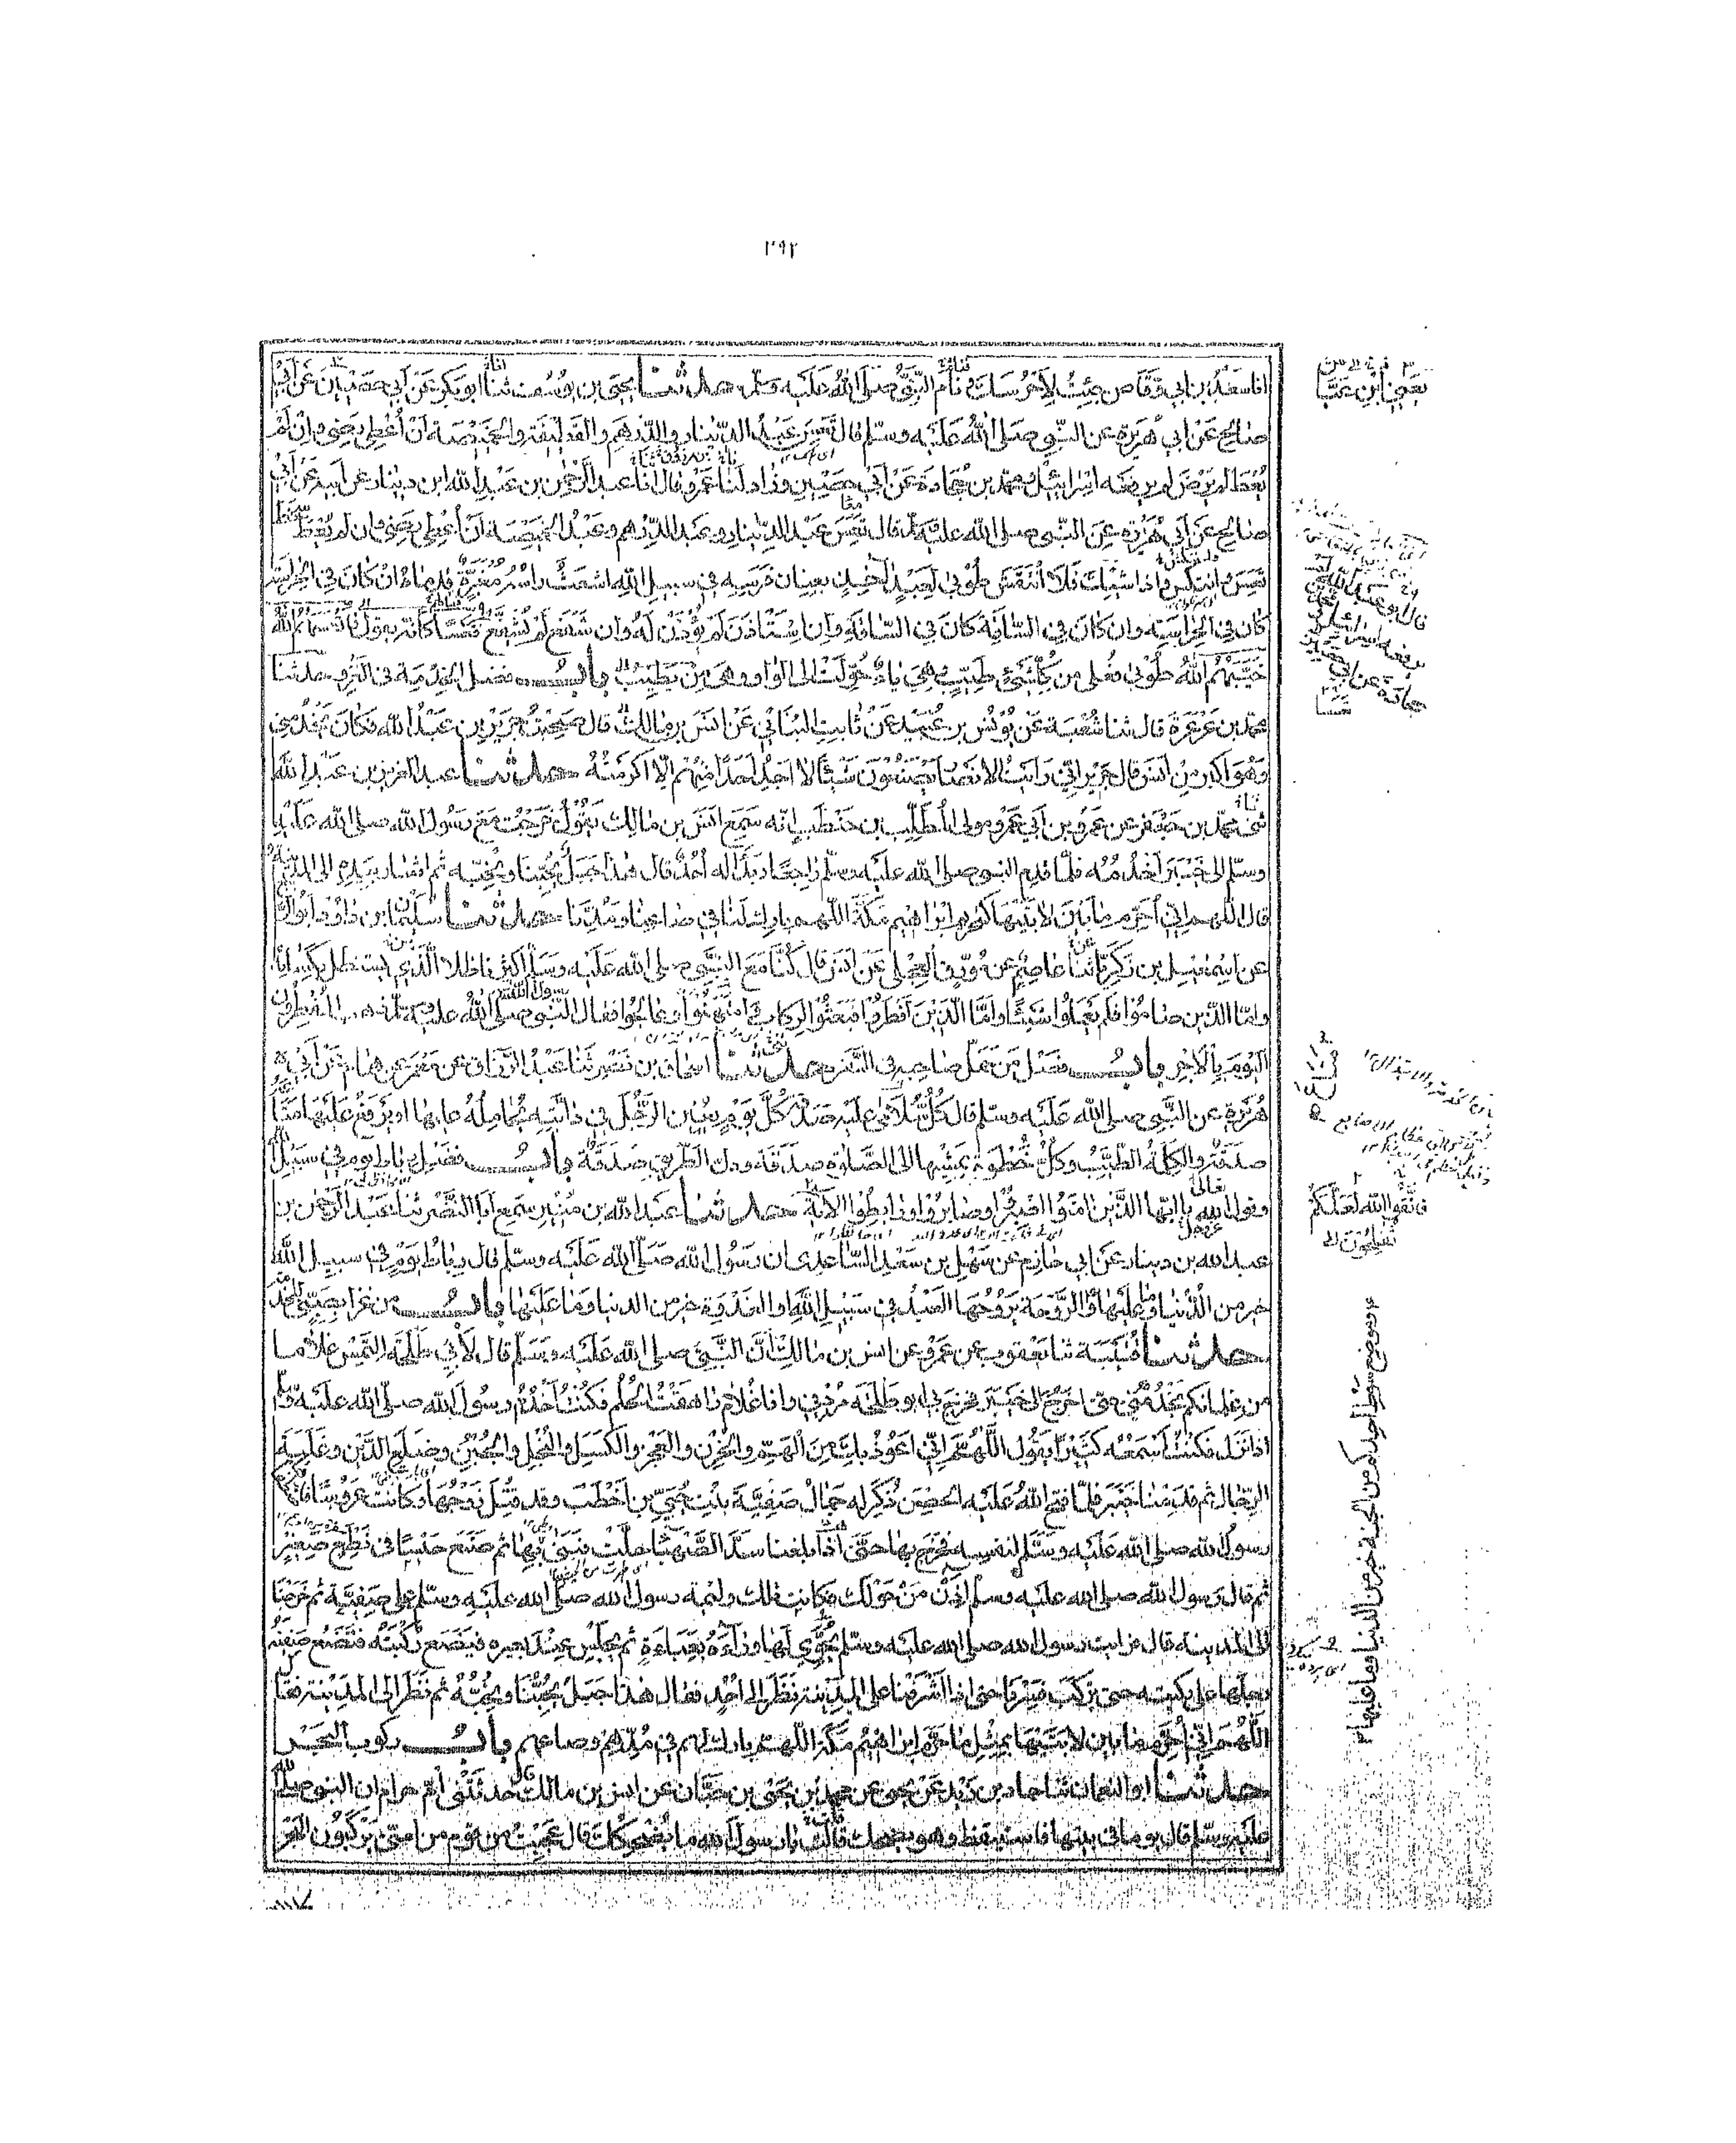 ٢٩٢
انا سعد بن ابي وقاص جئت لاحرسك فنام النبي صلى الله عليه وسلم حدثنا يحيى بن يوسف ثنا ابو بكر عن ابي حصين عن ابي
صالح عن ابي هريرة عن النبي صلى الله عليه وسلم قال تعس عبد الدينار والدرهم والقطيفة والخميصة ان اعطي رضي وان لم
يعط لم يرض لم يرفعه اسرائيل ومحمد بن جحادة عن ابي حصين وزاد لنا عمرو قال انا عبد الرحمن بن عبد الله ابن دينار عن ابيه عن ابي
صالح عن ابي هريرة عن النبي صلى الله عليه وسلم قال تعس عبد الدينار وعبد الدرهم وعبد الخميصة ان اعطي رضي وان لم يعط سخط
تعس وانتكس واذا شيك فلا انتقش طوبى لعبد اخذ بعنان فرسه في سبيل الله اشعث راسه مغبرة قدماه ان كان في الحراسة
كان في الحراسة وان كان في الساقة كان في الساقة وان استاذن لم يؤذن له وان شفع لم يشفع فتعسا كانه يقول فاتعسهم الله
خيبهم الله طوبى فعلى من كل شيء طيب وهي ياء حولت الى الواو وهي من يطيب باب فضل الخدمة في الغزو حدثنا
محمد بن عرعرة قال ثنا شعبة عن يونس بن عبيد عن ثابت البناني عن انس بن مالك قال صحبت جرير بن عبد الله فكان يخدمني
وهو اكبر من انس قال جرير اني رايت الانصار يصنعون شيئا لا اجد احدا منهم الا اكرمته حدثنا عبد العزيز بن عبد الله
ثني محمد بن جعفر عن عمرو بن ابي عمرو مولى المطلب بن حنطب انه سمع انس بن مالك يقول خرجت مع رسول الله صلى الله عليه
وسلم الى خيبر اخدمه فلما قدم النبي صلى الله عليه وسلم راجعا وبدا له احد قال هذا جبل يحبنا ونحبه ثم اشار بيده الى المدينة
قال اللهم اني احرم ما بين لابتيها كتحريم ابراهيم مكة اللهم بارك لنا في صاعنا ومدنا حدثنا سليمان بن داود ابو الربيع
عن اسمعيل بن زكريا ثنا عاصم عن مورق العجلي عن انس قال كنا مع النبي صلى الله عليه وسلم اكثرنا ظلا الذي يستظل بكسائه
واما الذين صاموا فلم يعملوا شيئا واما الذين افطروا فبعثوا الركاب وامتهنوا وعالجوا فقال النبي صلى الله عليه وسلم ذهب المفطرون
اليوم بالاجر باب فضل من حمل متاع صاحبه في السفر حدثنا اسحاق بن نصر ثنا عبد الرزاق عن معمر عن همام عن ابي
هريرة عن النبي صلى الله عليه وسلم قال كل سلامى عليه صدقة كل يوم يعين الرجل في دابته يحامله عليها او يرفع عليها متاعه
صدقة والكلمة الطيبة وكل خطوة يمشيها الى الصلوة صدقة ودل الطريق صدقة باب فضل رباط يوم في سبيل الله
وقول الله تعالى يا ايها الذين امنوا اصبروا وصابروا ورابطوا الاية حدثنا عبد الله بن منير سمع ابا النضر ثنا عبد الرحمن بن
عبد الله بن دينار عن ابي حازم عن سهل بن سعد الساعدي ان رسول الله صلى الله عليه وسلم قال رباط يوم في سبيل الله
خير من الدنيا وما عليها والروحة يروحها العبد في سبيل الله او الغدوة خير من الدنيا وما عليها باب من غزا بصبي للخدمة
حدثنا قتيبة ثنا يعقوب عن عمرو عن انس بن مالك ان النبي صلى الله عليه وسلم قال لابي طلحة التمس غلاما
من غلمانكم يخدمني حتى اخرج الى خيبر فخرج بي ابو طلحة مردفي وانا غلام راهقت الحلم فكنت اخدم رسول الله صلى الله عليه وسلم
اذا نزل فكنت اسمعه كثيرا يقول اللهم اني اعوذ بك من الهم والحزن والعجز والكسل والبخل والجبن وضلع الدين وغلبة
الرجال ثم قدمنا خيبر فلما فتح الله عليه الحصن ذكر له جمال صفية بنت حيي بن اخطب وقد قتل زوجها وكانت عروسا فاصطفاها
رسول الله صلى الله عليه وسلم لنفسه فخرج بها حتى اذا بلغنا سد الصهباء حلت فبنى بها ثم صنع حيسا في نطع صغير
ثم قال رسول الله صلى الله عليه وسلم اذن من حولك فكانت تلك وليمة رسول الله صلى الله عليه وسلم على صفية ثم خرجنا
الى المدينة قال فرايت رسول الله صلى الله عليه وسلم يحوي لها وراءه بعباءة ثم يجلس عند بعيره فيضع ركبته فتضع صفية
رجلها على ركبته حتى تركب فسرنا حتى اذا اشرفنا على المدينة نظر الى احد فقال هذا جبل يحبنا ونحبه ثم نظر الى المدينة فقال
اللهم اني احرم ما بين لابتيها بمثل ما حرم ابراهيم مكة اللهم بارك لهم في مدهم وصاعهم باب ركوب البحر
حدثنا ابو النعمان ثنا حماد بن زيد عن يحيى عن محمد بن يحيى بن حبان عن انس بن مالك قال حدثتني ام حرام ان النبي صلى الله
عليه وسلم قال يوما في بيتها فاستيقظ وهو يضحك قالت يا رسول الله ما يضحكك قال عجبت من قوم من امتي يركبون البحر
يعني ابن عياش
قال ابو عبد الله
لم يرفعه اسرائيل ومحمد بن
جحادة عن ابي حصين
فاتقوا الله لعلكم
تفلحون
وموضع سوط احدكم من الجنة خير من الدنيا وما عليها